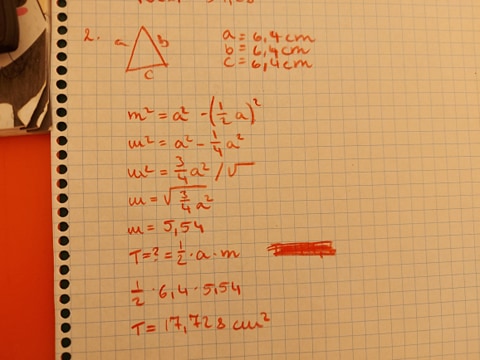 2.
a b c
a = 6,4 cm
b = 6,4 cm
c = 6,4 cm
m² = a² - (1/2 a)²
m² = a² - 1/4 a²
m² = 3/4 a² /√
m = √(3/4 a²)
m = 5,54
T = ? = 1/2 · a · m
1/2 · 6,4 · 5,54
T = 17,728 cm²